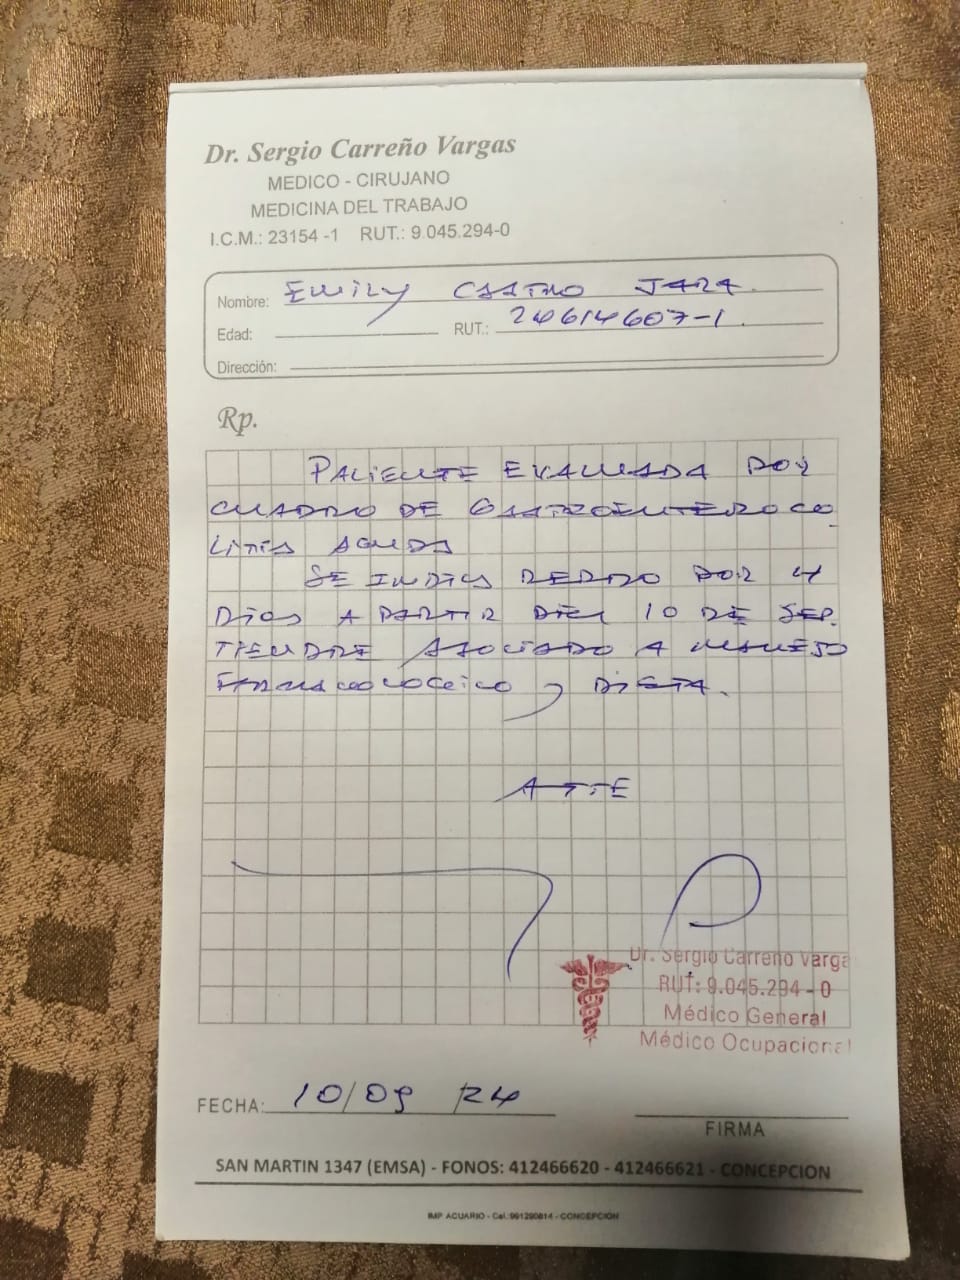 Dr. Sergio Carreño Vargas
MEDICO - CIRUJANO
MEDICINA DEL TRABAJO
I.C.M.: 23154 -1 RUT.: 9.045.294-0
Nombre: EMILY CASTRO JARA
Edad: RUT.: 24614607-1
Dirección:
Rp.
PACIENTE EVALUADA POR
CUADRO DE GASTROENTEROCO
LITIS AGUDA
SE INDICA REPOSO POR 4
DIAS A PARTIR DEL 10 DE SEP.
TIEMBRE ASOCIADO A MANEJO
FARMACOLOGICO Y DIETA.
ATTE
Dr. Sergio Carreño Varga
RUT: 9.045.294-0
Médico General
Médico Ocupacional
FECHA: 10/09/24
FIRMA
SAN MARTIN 1347 (EMSA) - FONOS: 412466620 - 412466621 - CONCEPCION
IMP ACUARIO - Cel.: 991290814 - CONCEPCIÓN